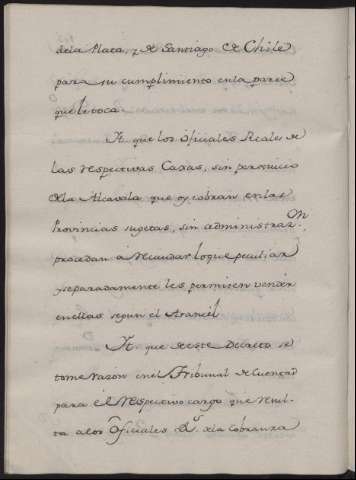 dela Plata, y de Santiago de Chile
para su cumplimiento enla parte
que le toca
It. que los oficiales Reales de
las respectivas Caxas, sin perjuicio
dela Alcavala que oy cobran enlas
Provincias sugetas, sin administraz.on
procedan à recaudar loque peculiar
y separadamente les permiten vender
enellas segun el Arancel
It. que deeste Decreto se
tome razon enel Tribunal de Cuentas
para el respectivo cargo que resul-
ta alos Oficiales R.s dela cobranza